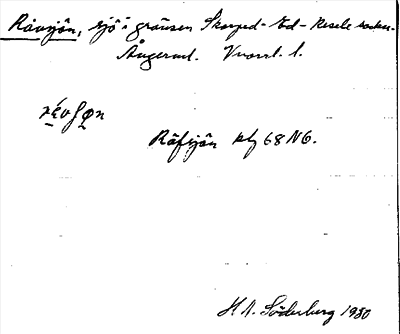 Rävsjön, sjö i gränsen Skorped-Ed-Resele socken.
Ångerml. Vuorl. l.
rę́vʃọn
Räfsjön kbl 68 NO.
H A. Söderberg 1930